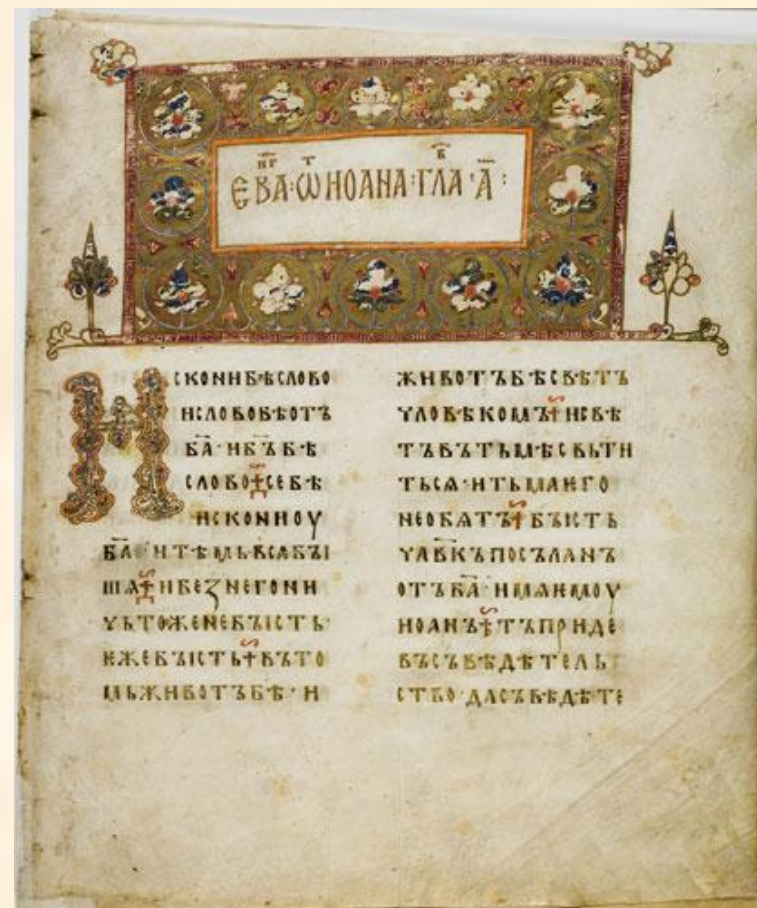 ЕВА҃:Ѡ ИОАНА:ГЛА·А҃:
ИСКОНИБѢСЛОВО
ИСЛОВОБѢОТЪ
БА҃·ИБЪ҃БѢ
СЛОВО·СЕБѢ
ИСКОНИОУ
БА҃·ИТѢМЬВСАБꙐ
ШѦ·ИБЕЗНЕГОНИ
ЧЬТОЖЕНЕБꙐСТЬ·
ЕЖЕБꙐСТЬ·ВЪТО
МЬЖИВОТЪБѢ·И
ЖИВОТЪБѢСВѢТЪ
ЧЛОВѢКОМЪ·ИСВѢ
ТЪВЪТЬМѢСВЬТИ
ТЬСѦ·ИТЬМАЕГО
НЕОБѦТЪ·БꙐСТЬ
ЧЛВ҃КЪПОСЪЛАНЪ
ОТЪБА҃·ИМѦЕМОУ
ИОАНЪ·ТЪПРИДЕ
ВЪСЪВѢДѢТЕЛЬ
СТВО·ДАСЪВѢДѢТЕ